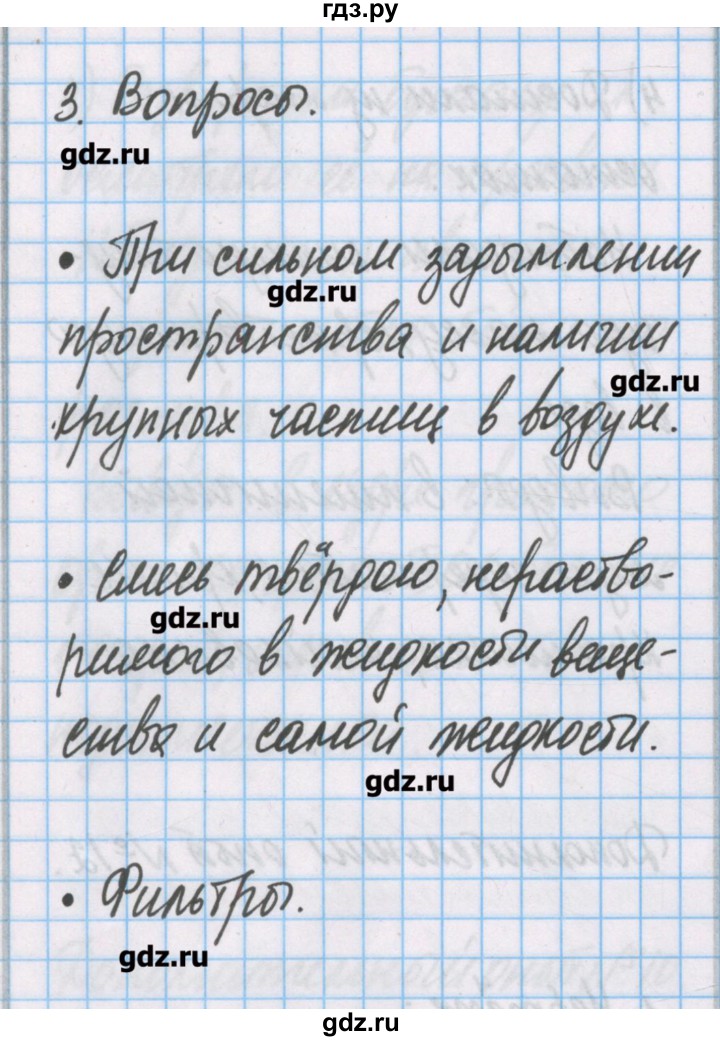 гдз.ру
3. Вопросы.
gdz.ru
• При сильном задымлении
gdz.ru
пространства и наличии
gdz.ru
крупных частиц в воздухе.
• Смесь твёрдого, нераство-
gdz.ru
римого в жидкости веще-
ства и самой жидкости.
gdz.ru
• Фильтры.
gdz.ru
gdz.ru